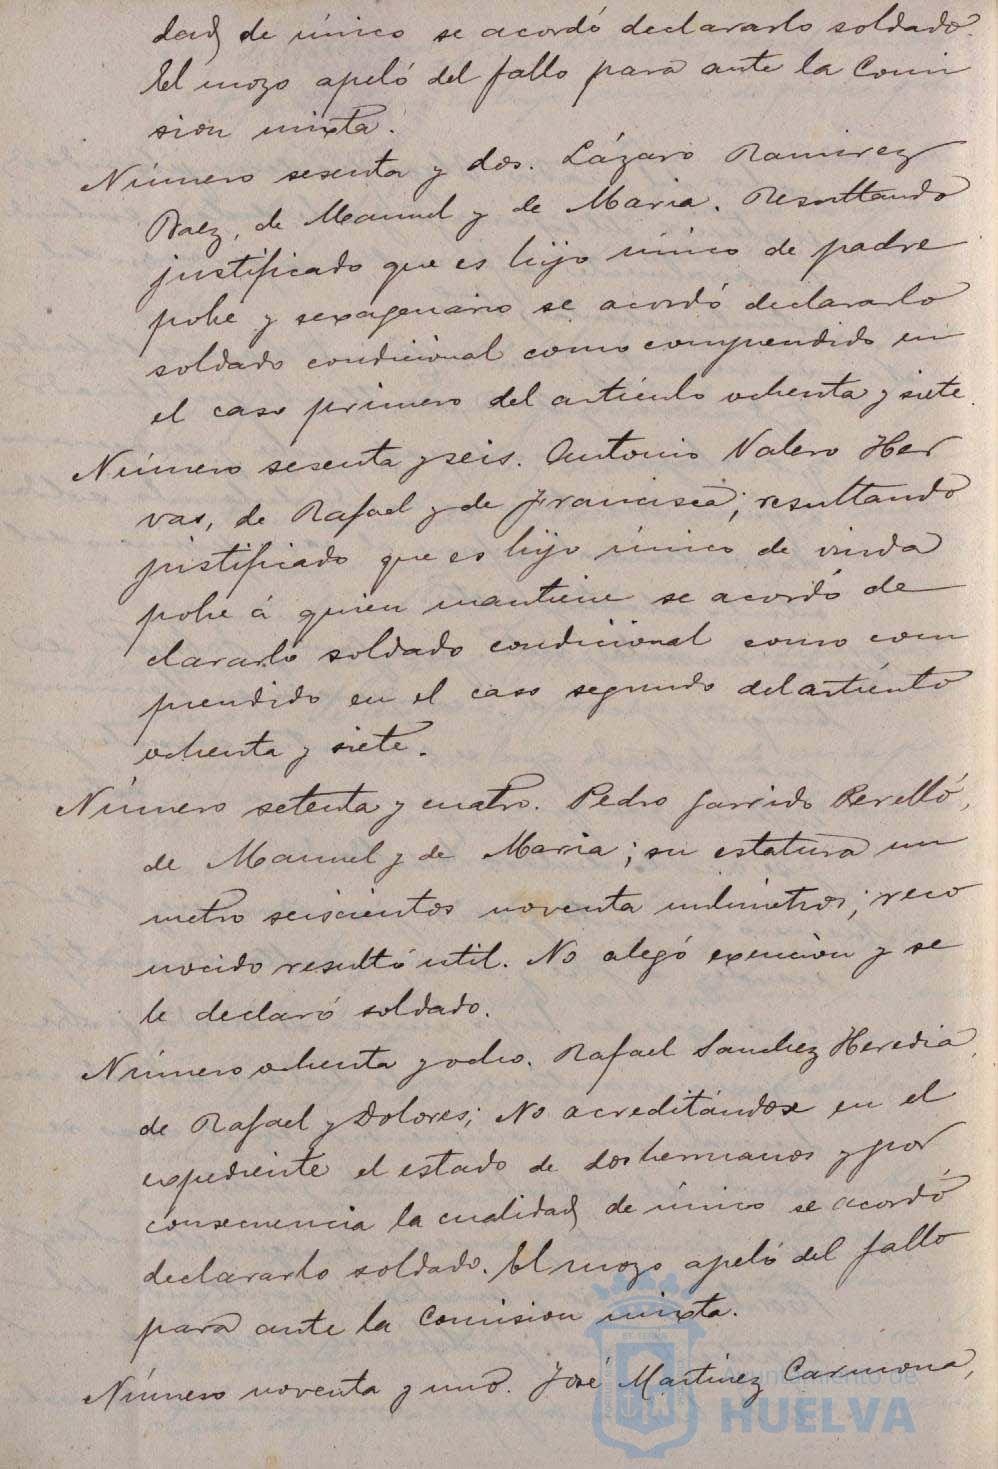 dad de único se acordó declararlo soldado.
El mozo apeló del fallo para ante la Comi
sion mixta.
Número sesenta y dos. Lázaro Ramirez
Baez, de Manuel y de Maria. Resultando
justificado que es hijo único de padre
pobre y sexagenario se acordó declararlo
soldado condicional como comprendido en
el caso primero del artículo ochenta y siete.
Número sesenta y seis. Antonio Valero Her
vas, de Rafael y de Francisca; resultando
justificado que es hijo único de viuda
pobre á quien mantiene se acordó de
clararlo soldado condicional como com
prendido en el caso segundo del artículo
ochenta y siete.
Número setenta y cuatro. Pedro Garrido Perelló,
de Manuel y de Maria; su estatura un
metro seiscientos noventa milimetros; reco
nocido resultó util. No alegó exencion y se
le declaró soldado.
Número ochenta y ocho. Rafael Sanchez Heredia,
de Rafael y Dolores; No acreditándose en el
expediente el estado de dos hermanos y por
consecuencia la cualidad de único se acordó
declararlo soldado. El mozo apeló del fallo
para ante la Comision mixta.
Número noventa y uno. José Martinez Carmona,
Ayuntamiento de
HUELVA